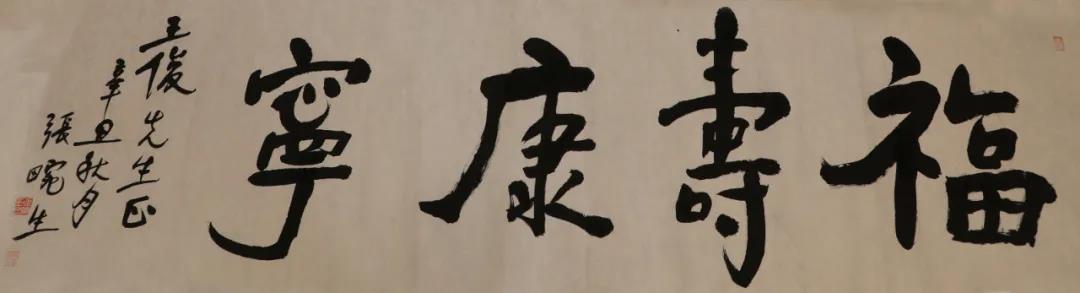 福壽康寧
王俊先生正
辛丑秋月
張畹生